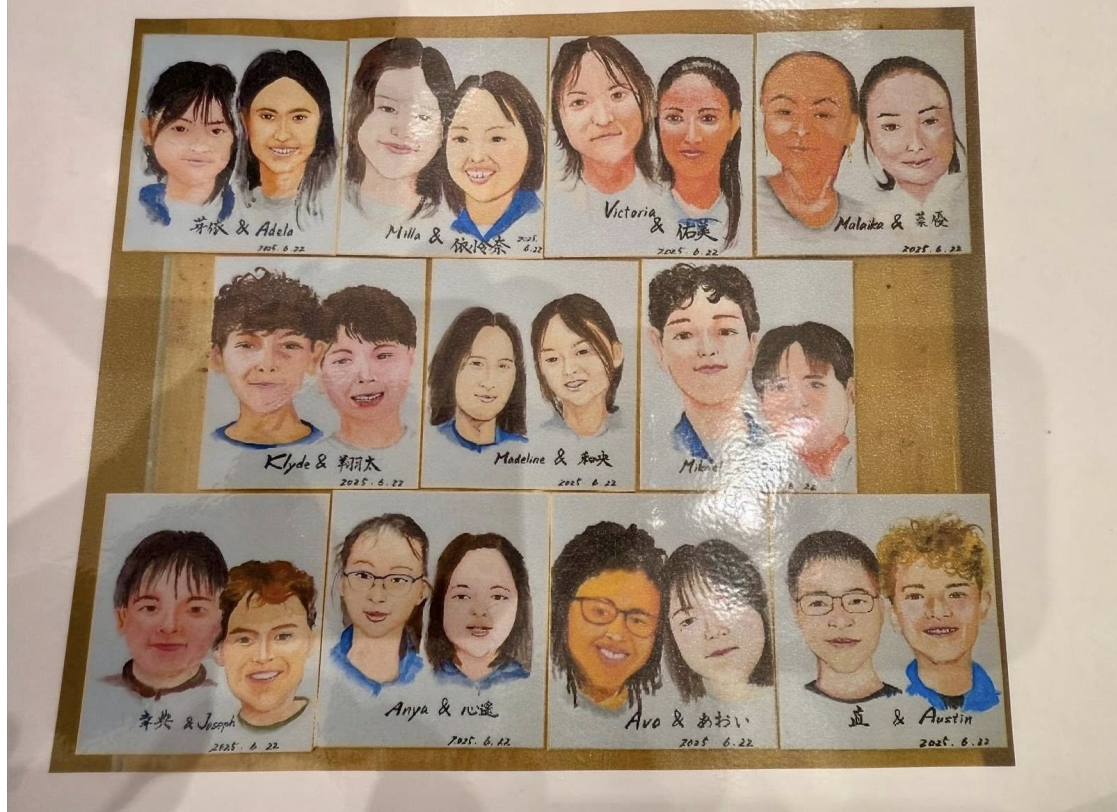 芽依 & Adela
2025.6.22
Milla & 依怜奈
2025.
6.22
Victoria
& 佑美
2025.6.22
Malaika & 菜優
2025.6.22
Klyde & 翔太
2025.6.22
Madeline & 和央
2025.6.22
6.22
& Joseph
2025.6.22
Anya & 心遥
2025.6.22
Ava & あおい
2025.6.22
直 & Austin
2025.6.22